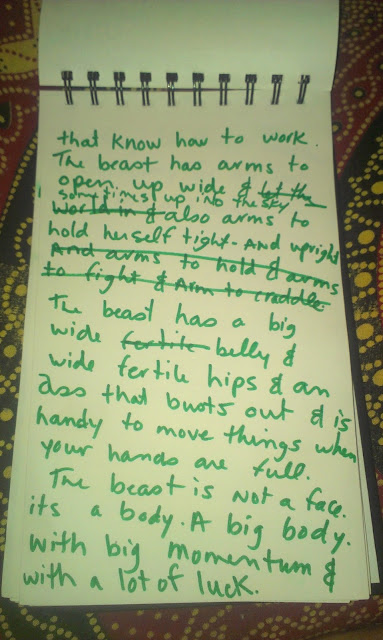 that know how to work.
The beast has arms to
open up wide & let the
sometimes! up into the sky
world in & also arms to
hold herself tight- And upright
And arms to hold & arms
to fight & Arm to craddle
The beast has a big
wide fertile belly &
wide fertile hips & an
ass that busts out & is
handy to move things when
your hands are full.
The beast is Not a face.
its a body. A big body.
with big momentum &
with a lot of luck.